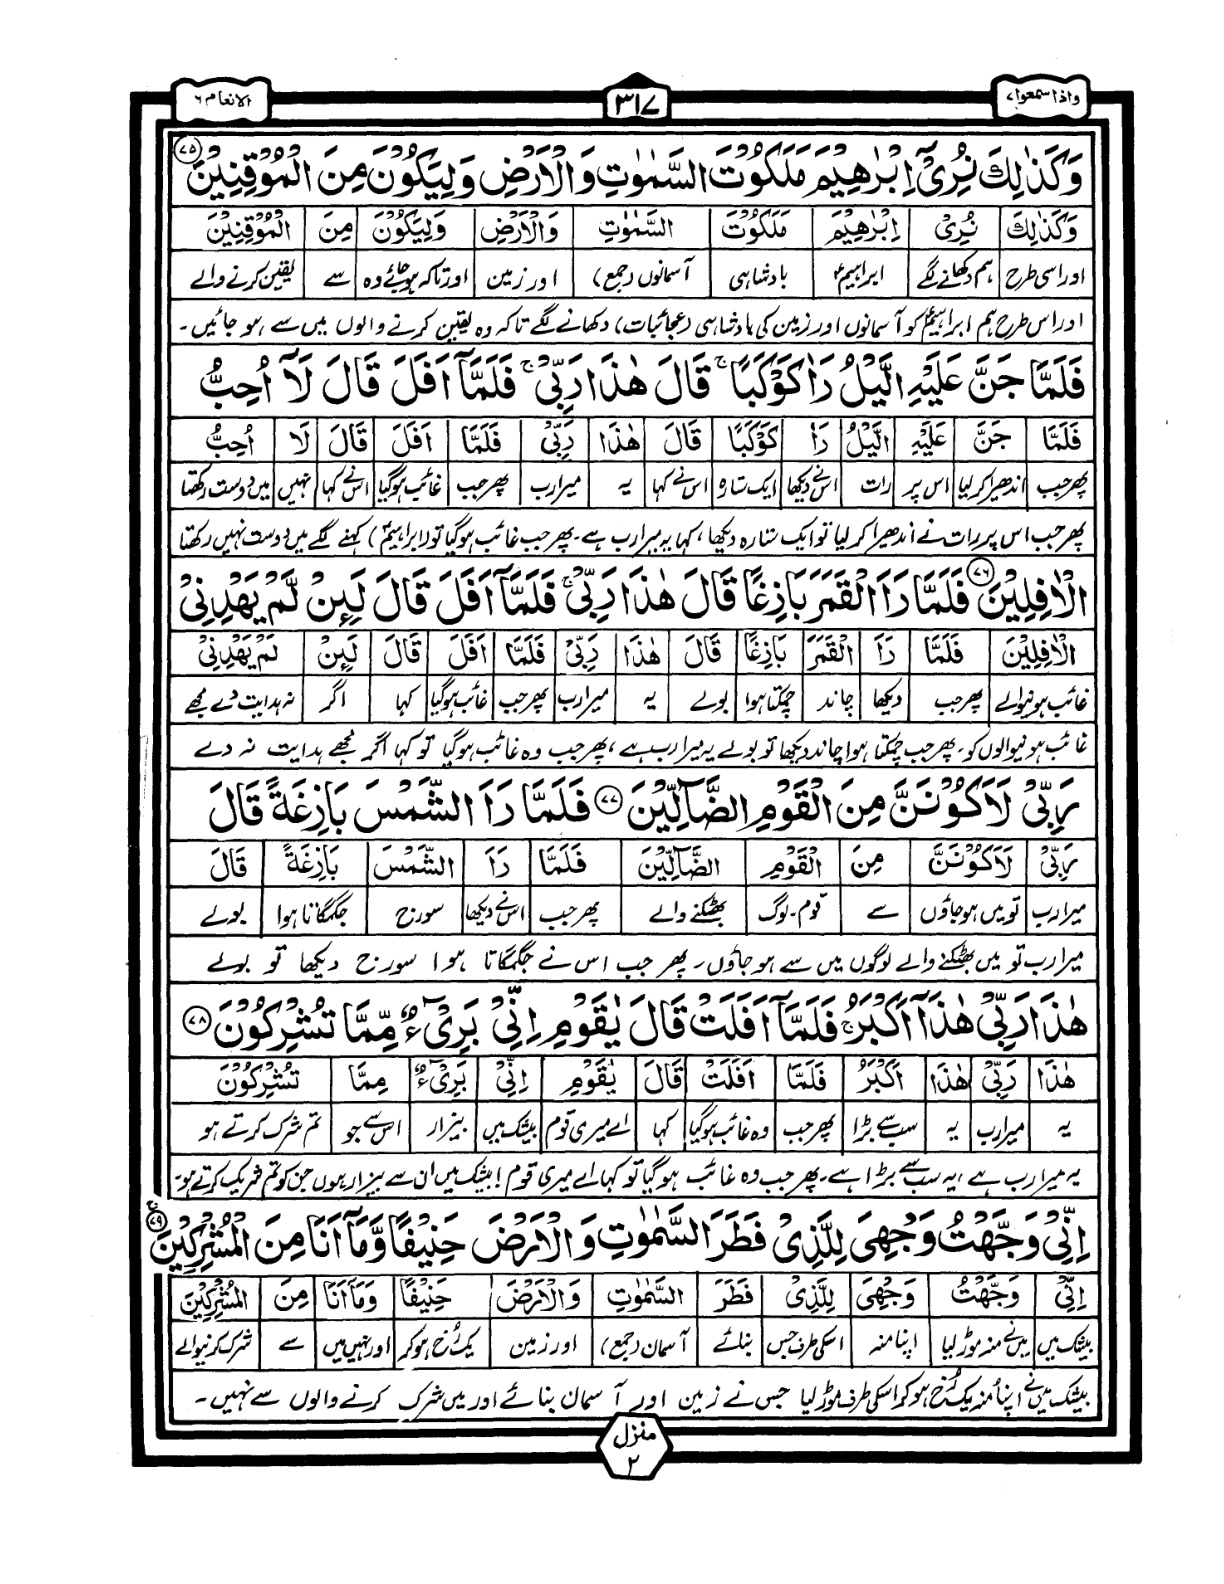 واذا سمعوا ۷
۳۱۷
الانعام ۶
وَكَذٰلِكَ نُرِیْۤ اِبْرٰهِیْمَ مَلَكُوْتَ السَّمٰوٰتِ وَالْاَرْضِ وَلِیَكُوْنَ مِنَ الْمُوْقِنِیْنَ ۷۵
وَكَذٰلِكَ نُرِیْ اِبْرٰهِیْمَ مَلَكُوْتَ السَّمٰوٰتِ وَالْاَرْضِ وَلِیَكُوْنَ مِنَ الْمُوْقِنِیْنَ
اور اسی طرح ہم دکھانے لگے ابراہیمؑ بادشاہی آسمانوں (جمع) اور زمین اور تاکہ ہو جائے وہ سے یقین کرنے والے
اور اس طرح ہم ابراہیمؑ کو آسمانوں اور زمین کی بادشاہی (عجائبات) دکھانے لگے تاکہ وہ یقین کرنے والوں میں سے ہو جائیں۔
فَلَمَّا جَنَّ عَلَیْهِ الَّیْلُ رَاٰ كَوْكَبًا ۚ قَالَ هٰذَا رَبِّیْ ۚ فَلَمَّاۤ اَفَلَ قَالَ لَاۤ اُحِبُّ
فَلَمَّا جَنَّ عَلَیْهِ الَّیْلُ رَاٰ كَوْكَبًا قَالَ هٰذَا رَبِّیْ فَلَمَّا اَفَلَ قَالَ لَا اُحِبُّ
پھر جب اندھیرا کر لیا اس پر رات اس نے دیکھا ایک ستارہ اس نے کہا یہ میرا رب پھر جب غائب ہوگیا اس نے کہا نہیں میں دوست رکھتا
پھر جب اس پر رات نے اندھیرا کر لیا تو ایک ستارہ دیکھا، کہا یہ میرا رب ہے۔ پھر جب غائب ہوگیا تو (ابراہیمؑ) کہنے لگے میں دوست نہیں رکھتا
الْاٰفِلِیْنَ ۷۶ فَلَمَّا رَاَ الْقَمَرَ بَازِغًا قَالَ هٰذَا رَبِّیْ ۚ فَلَمَّاۤ اَفَلَ قَالَ لَىِٕنْ لَّمْ یَهْدِنِیْ
الْاٰفِلِیْنَ فَلَمَّا رَاَ الْقَمَرَ بَازِغًا قَالَ هٰذَا رَبِّیْ فَلَمَّا اَفَلَ قَالَ لَىِٕنْ لَمْ یَهْدِنِیْ
غائب ہونیوالے پھر جب دیکھا چاند چمکتا ہوا بولے یہ میرا رب پھر جب غائب ہوگیا کہا اگر نہ ہدایت دے مجھے
غائب ہونیوالوں کو۔ پھر جب چمکتا ہوا چاند دیکھا تو بولے یہ میرا رب ہے، پھر جب وہ غائب ہوگیا تو کہا اگر مجھے ہدایت نہ دے
رَبِّیْ لَاَكُوْنَنَّ مِنَ الْقَوْمِ الضَّآلِّیْنَ ۷۷ فَلَمَّا رَاَ الشَّمْسَ بَازِغَةً قَالَ
رَبِّیْ لَاَكُوْنَنَّ مِنَ الْقَوْمِ الضَّآلِّیْنَ فَلَمَّا رَاَ الشَّمْسَ بَازِغَةً قَالَ
میرا رب تو میں ہو جاؤں سے قوم۔ لوگ بھٹکنے والے پھر جب اس نے دیکھا سورج جگمگاتا ہوا بولے
میرا رب تو میں بھٹکنے والے لوگوں میں سے ہو جاؤں۔ پھر جب اس نے جگمگاتا ہوا سورج دیکھا تو بولے
هٰذَا رَبِّیْ هٰذَاۤ اَكْبَرُ ۚ فَلَمَّاۤ اَفَلَتْ قَالَ یٰقَوْمِ اِنِّیْ بَرِیْٓءٌ مِّمَّا تُشْرِكُوْنَ ۷۸
هٰذَا رَبِّیْ هٰذَا اَكْبَرُ فَلَمَّا اَفَلَتْ قَالَ یٰقَوْمِ اِنِّیْ بَرِیْٓءٌ مِمَّا تُشْرِكُوْنَ
یہ میرا رب یہ سب سے بڑا پھر جب وہ غائب ہوگیا کہا اے میری قوم بیشک میں بیزار اس سے جو تم شرک کرتے ہو
یہ میرا رب ہے، یہ سب سے بڑا ہے۔ پھر جب وہ غائب ہوگیا تو کہا اے میری قوم! بیشک میں ان سے بیزار ہوں جن کو تم شریک کرتے ہو۔
اِنِّیْ وَجَّهْتُ وَجْهِیَ لِلَّذِیْ فَطَرَ السَّمٰوٰتِ وَالْاَرْضَ حَنِیْفًا وَّمَاۤ اَنَا مِنَ الْمُشْرِكِیْنَ ۷۹
اِنِّیْ وَجَّهْتُ وَجْهِیَ لِلَّذِیْ فَطَرَ السَّمٰوٰتِ وَالْاَرْضَ حَنِیْفًا وَمَا اَنَا مِنَ الْمُشْرِكِیْنَ
بیشک میں میں نے منہ موڑ لیا اپنا منہ اسکی طرف جس بنائے آسمان (جمع) اور زمین یک رُخ ہو کر اور نہیں میں سے شرک کرنیوالے
بیشک میں نے اپنا منہ یک رُخ ہو کر اسکی طرف موڑ لیا جس نے زمین اور آسمان بنائے اور میں شرک کرنے والوں سے نہیں۔
منزل
۲